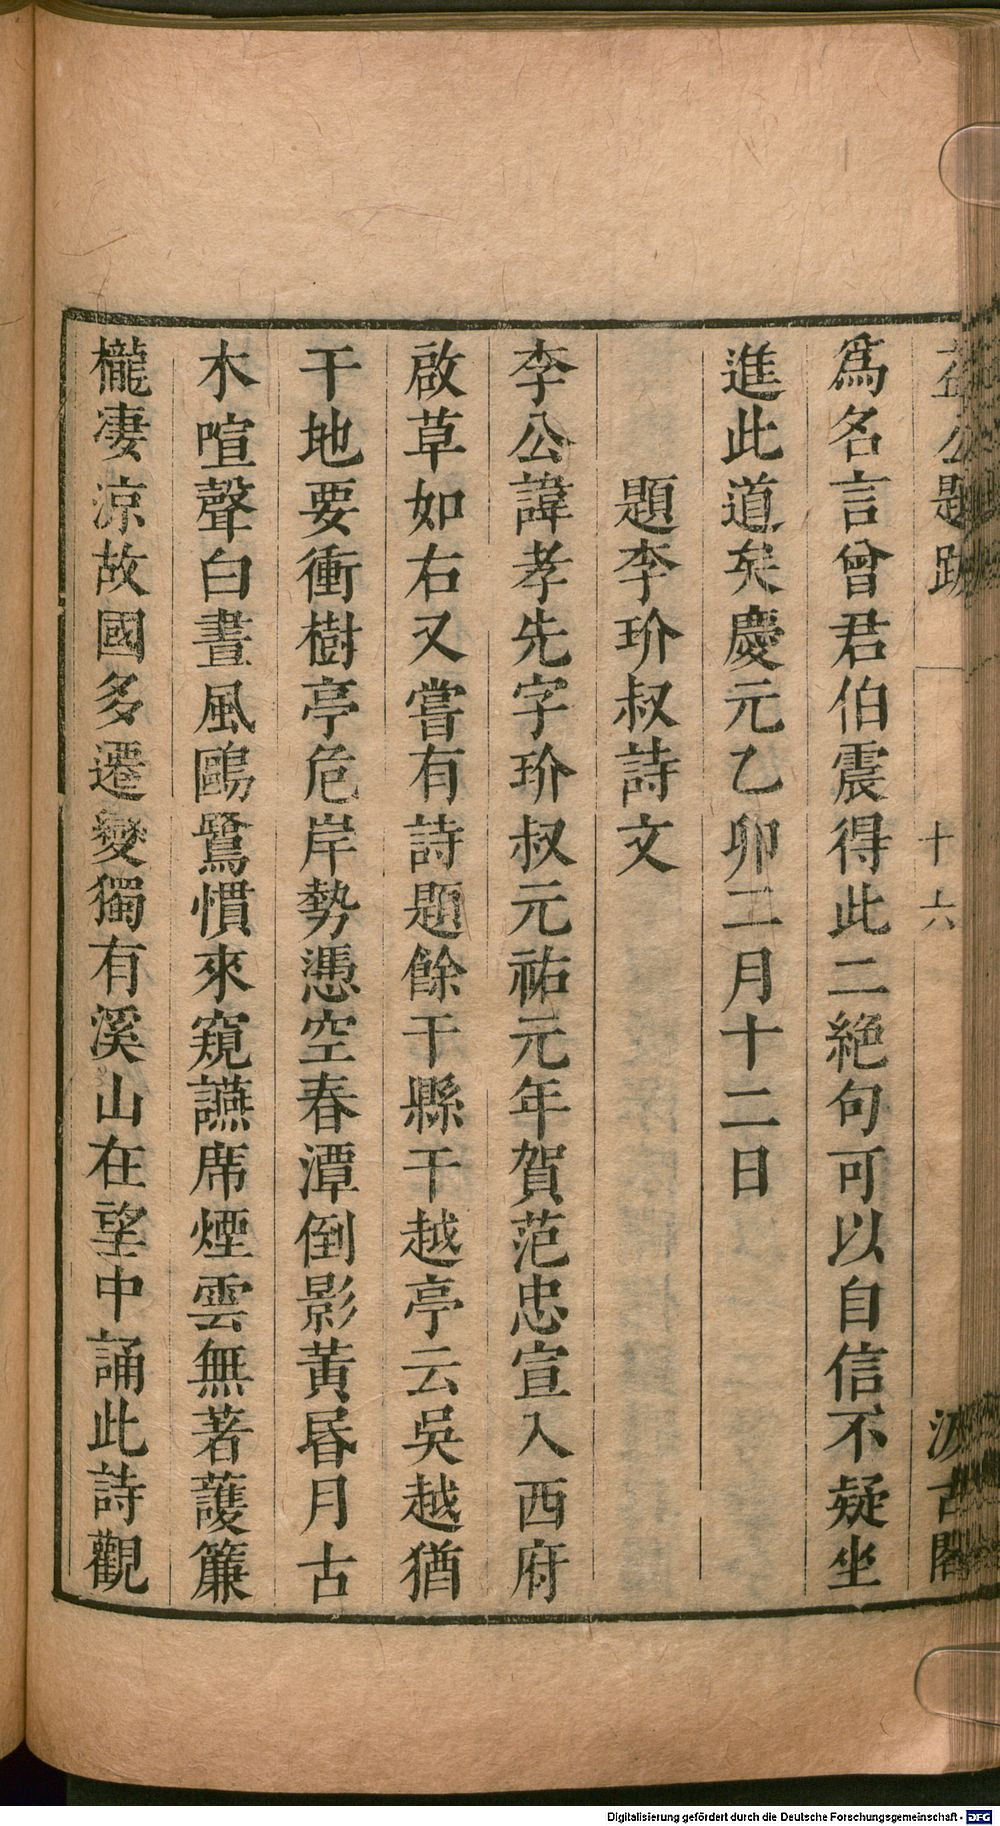 益公題跋 十六 汲古閣
爲名言曾君伯震得此二絶句可以自信不疑坐
進此道矣慶元乙卯二月十二日
題李玠叔詩文
李公諱孝先字玠叔元祐元年賀范忠宣入西府
啟草如右又嘗有詩題餘干縣干越亭云吳越猶
干地要衝樹亭危岸勢憑空春潭倒影黃昏月古
木喧聲白晝風鷗鷺慣來窺讌席煙雲無著護簾
櫳凄涼故國多遷變獨有溪山在望中誦此詩觀
Digitalisierung gefördert durch die Deutsche Forschungsgemeinschaft - DFG